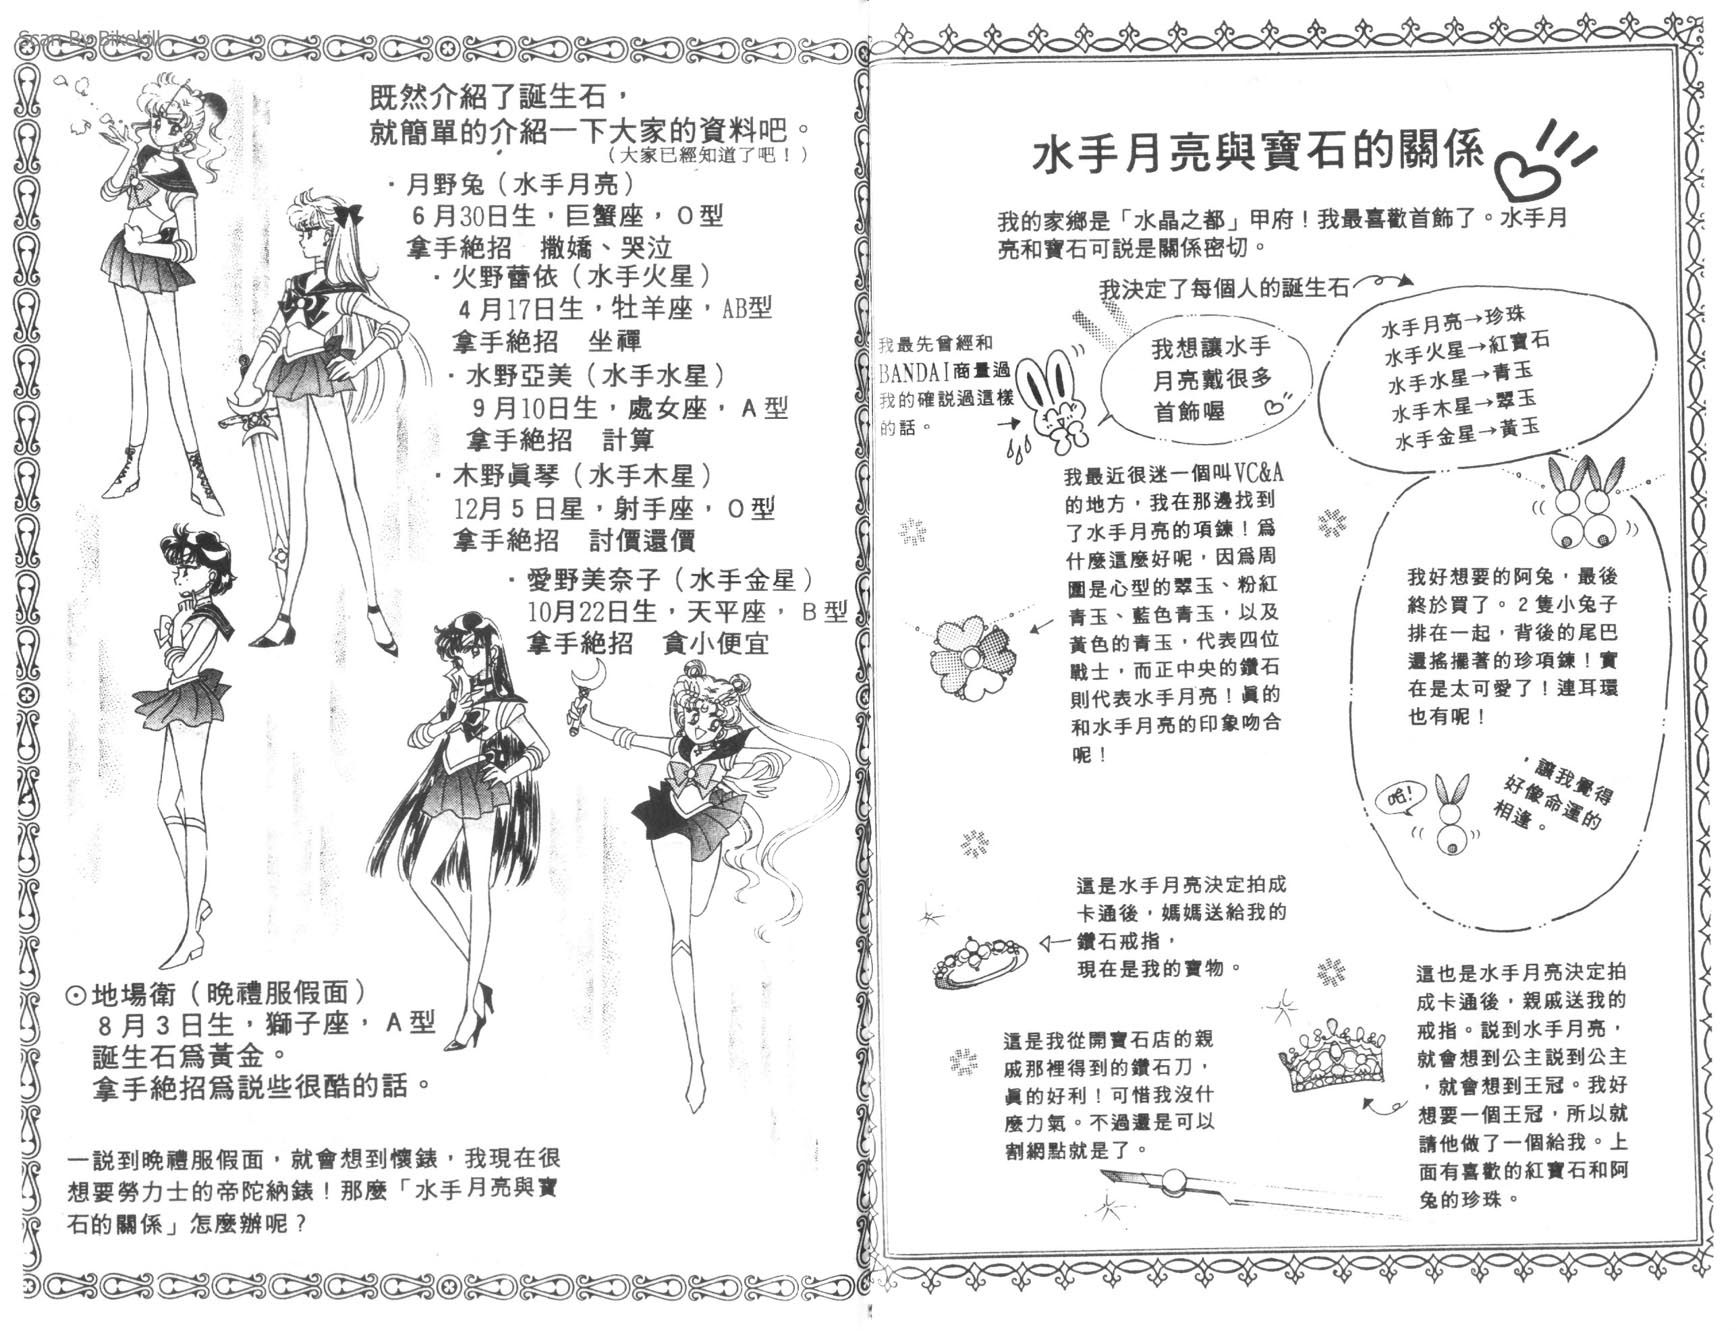 Scan By Bikekill
水手月亮與寶石的關係
我的家鄉是「水晶之都」甲府！我最喜歡首飾了。水手月
亮和寶石可説是關係密切。
我決定了每個人的誕生石
水手月亮→珍珠
水手火星→紅寶石
水手水星→青玉
水手木星→翠玉
水手金星→黃玉
我想讓水手
月亮戴很多
首飾喔
我最先曾經和
BANDAI商量過
我的確説過這樣
的話。
我最近很迷一個叫VC&A
的地方，我在那邊找到
了水手月亮的項鍊！爲
什麼這麼好呢，因爲周
圍是心型的翠玉、粉紅
青玉、藍色青玉，以及
黃色的青玉，代表四位
戰士，而正中央的鑽石
則代表水手月亮！眞的
和水手月亮的印象吻合
呢！
我好想要的阿兔，最後
終於買了。２隻小兔子
排在一起，背後的尾巴
還搖擺著的珍項鍊！實
在是太可愛了！連耳環
也有呢！
，讓我覺得
好像命運的
相逢。
哈！
這是水手月亮決定拍成
卡通後，媽媽送給我的
鑽石戒指，
現在是我的寶物。
這也是水手月亮決定拍
成卡通後，親戚送我的
戒指。説到水手月亮，
就會想到公主説到公主
，就會想到王冠。我好
想要一個王冠，所以就
請他做了一個給我。上
面有喜歡的紅寶石和阿
兔的珍珠。
這是我從開寶石店的親
戚那裡得到的鑽石刀，
眞的好利！可惜我沒什
麼力氣。不過還是可以
割網點就是了。
既然介紹了誕生石，
就簡單的介紹一下大家的資料吧。
（大家已經知道了吧！）
・月野兔（水手月亮）
６月30日生，巨蟹座，Ｏ型
拿手絕招　撒嬌、哭泣
・火野蕾依（水手火星）
４月17日生，牡羊座，AB型
拿手絕招　坐禪
・水野亞美（水手水星）
９月10日生，處女座，Ａ型
拿手絕招　計算
・木野眞琴（水手木星）
12月５日星，射手座，Ｏ型
拿手絕招　討價還價
・愛野美奈子（水手金星）
10月22日生，天平座，Ｂ型
拿手絕招　貪小便宜
⊙地場衛（晩禮服假面）
８月３日生，獅子座，Ａ型
誕生石爲黃金。
拿手絕招爲説些很酷的話。
一説到晩禮服假面，就會想到懷錶，我現在很
想要勞力士的帝陀納錶！那麼「水手月亮與寶
石的關係」怎麼辦呢？